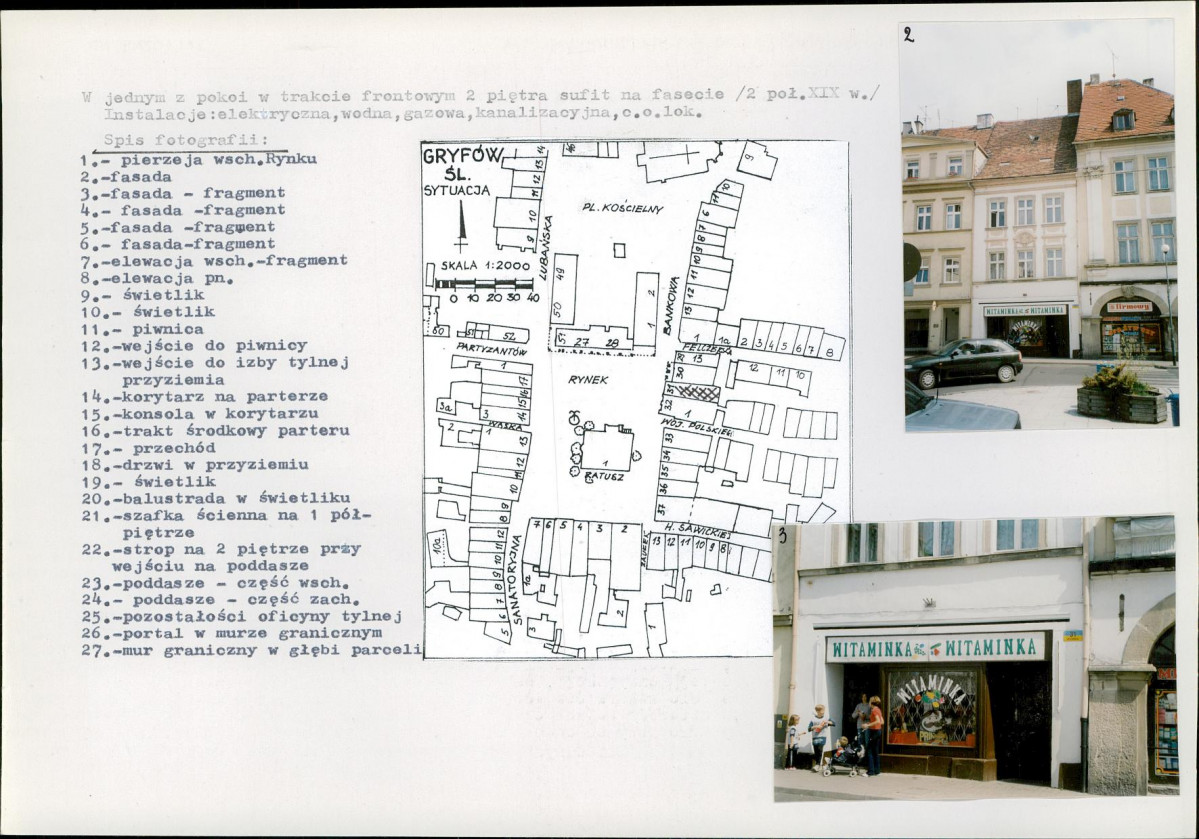 W jednym z pokoi w trakcie frontowym 2 piętra sufit na fasecie /2 poł.XIX w./
Instalacje:elektryczna,wodna,gazowa,kanalizacyjna,c.o.lok.
Spis fotografii:
1.- pierzeja wsch.Rynku
2.-fasada
3.-fasada - fragment
4.- fasada -fragment
5.-fasada -fragment
6.- fasada-fragment
7.-elewacja wsch.-fragment
8.-elewacja pn.
9.- świetlik
10.- świetlik
11.- piwnica
12.-wejście do piwnicy
13.-wejście do izby tylnej
przyziemia
14.-korytarz na parterze
15.-konsola w korytarzu
16.-trakt środkowy parteru
17.- przechód
18.-drzwi w przyziemiu
19.- świetlik
20.-balustrada w świetliku
21.-szafka ścienna na 1 pół-
piętrze
22.-strop na 2 piętrze przy
wejściu na poddasze
23.-poddasze - część wsch.
24.- poddasze - część zach.
25.-pozostałości oficyny tylnej
26.-portal w murze granicznym
27.-mur graniczny w głębi parceli
GRYFÓW
ŚL.
SYTUACJA
SKALA 1:2000
0 10 20 30 40
PL. KOŚCIELNY
LUBAŃSKA
BANKOWA
PARTYZANTÓW
RYNEK
WĄSKA
WOJ. POLSKIEGO
RATUSZ
H. SAWICKIEJ
SANATORYJNA
2
WITAMINKA WITAMINKA
Firmowy
3
WITAMINKA WITAMINKA
WITAMINKA